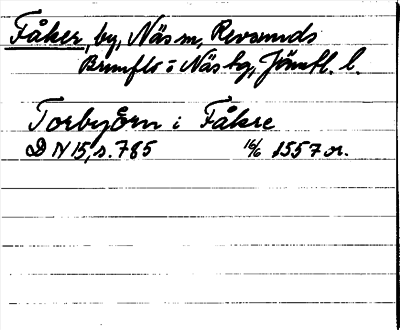 Fåker, by, Näs sn, Revsunds
Brunflo o Näs tg, Jämtl. l.
Torbyörn i Fåkre
D N 15, s. 785 16/6 1557 or.